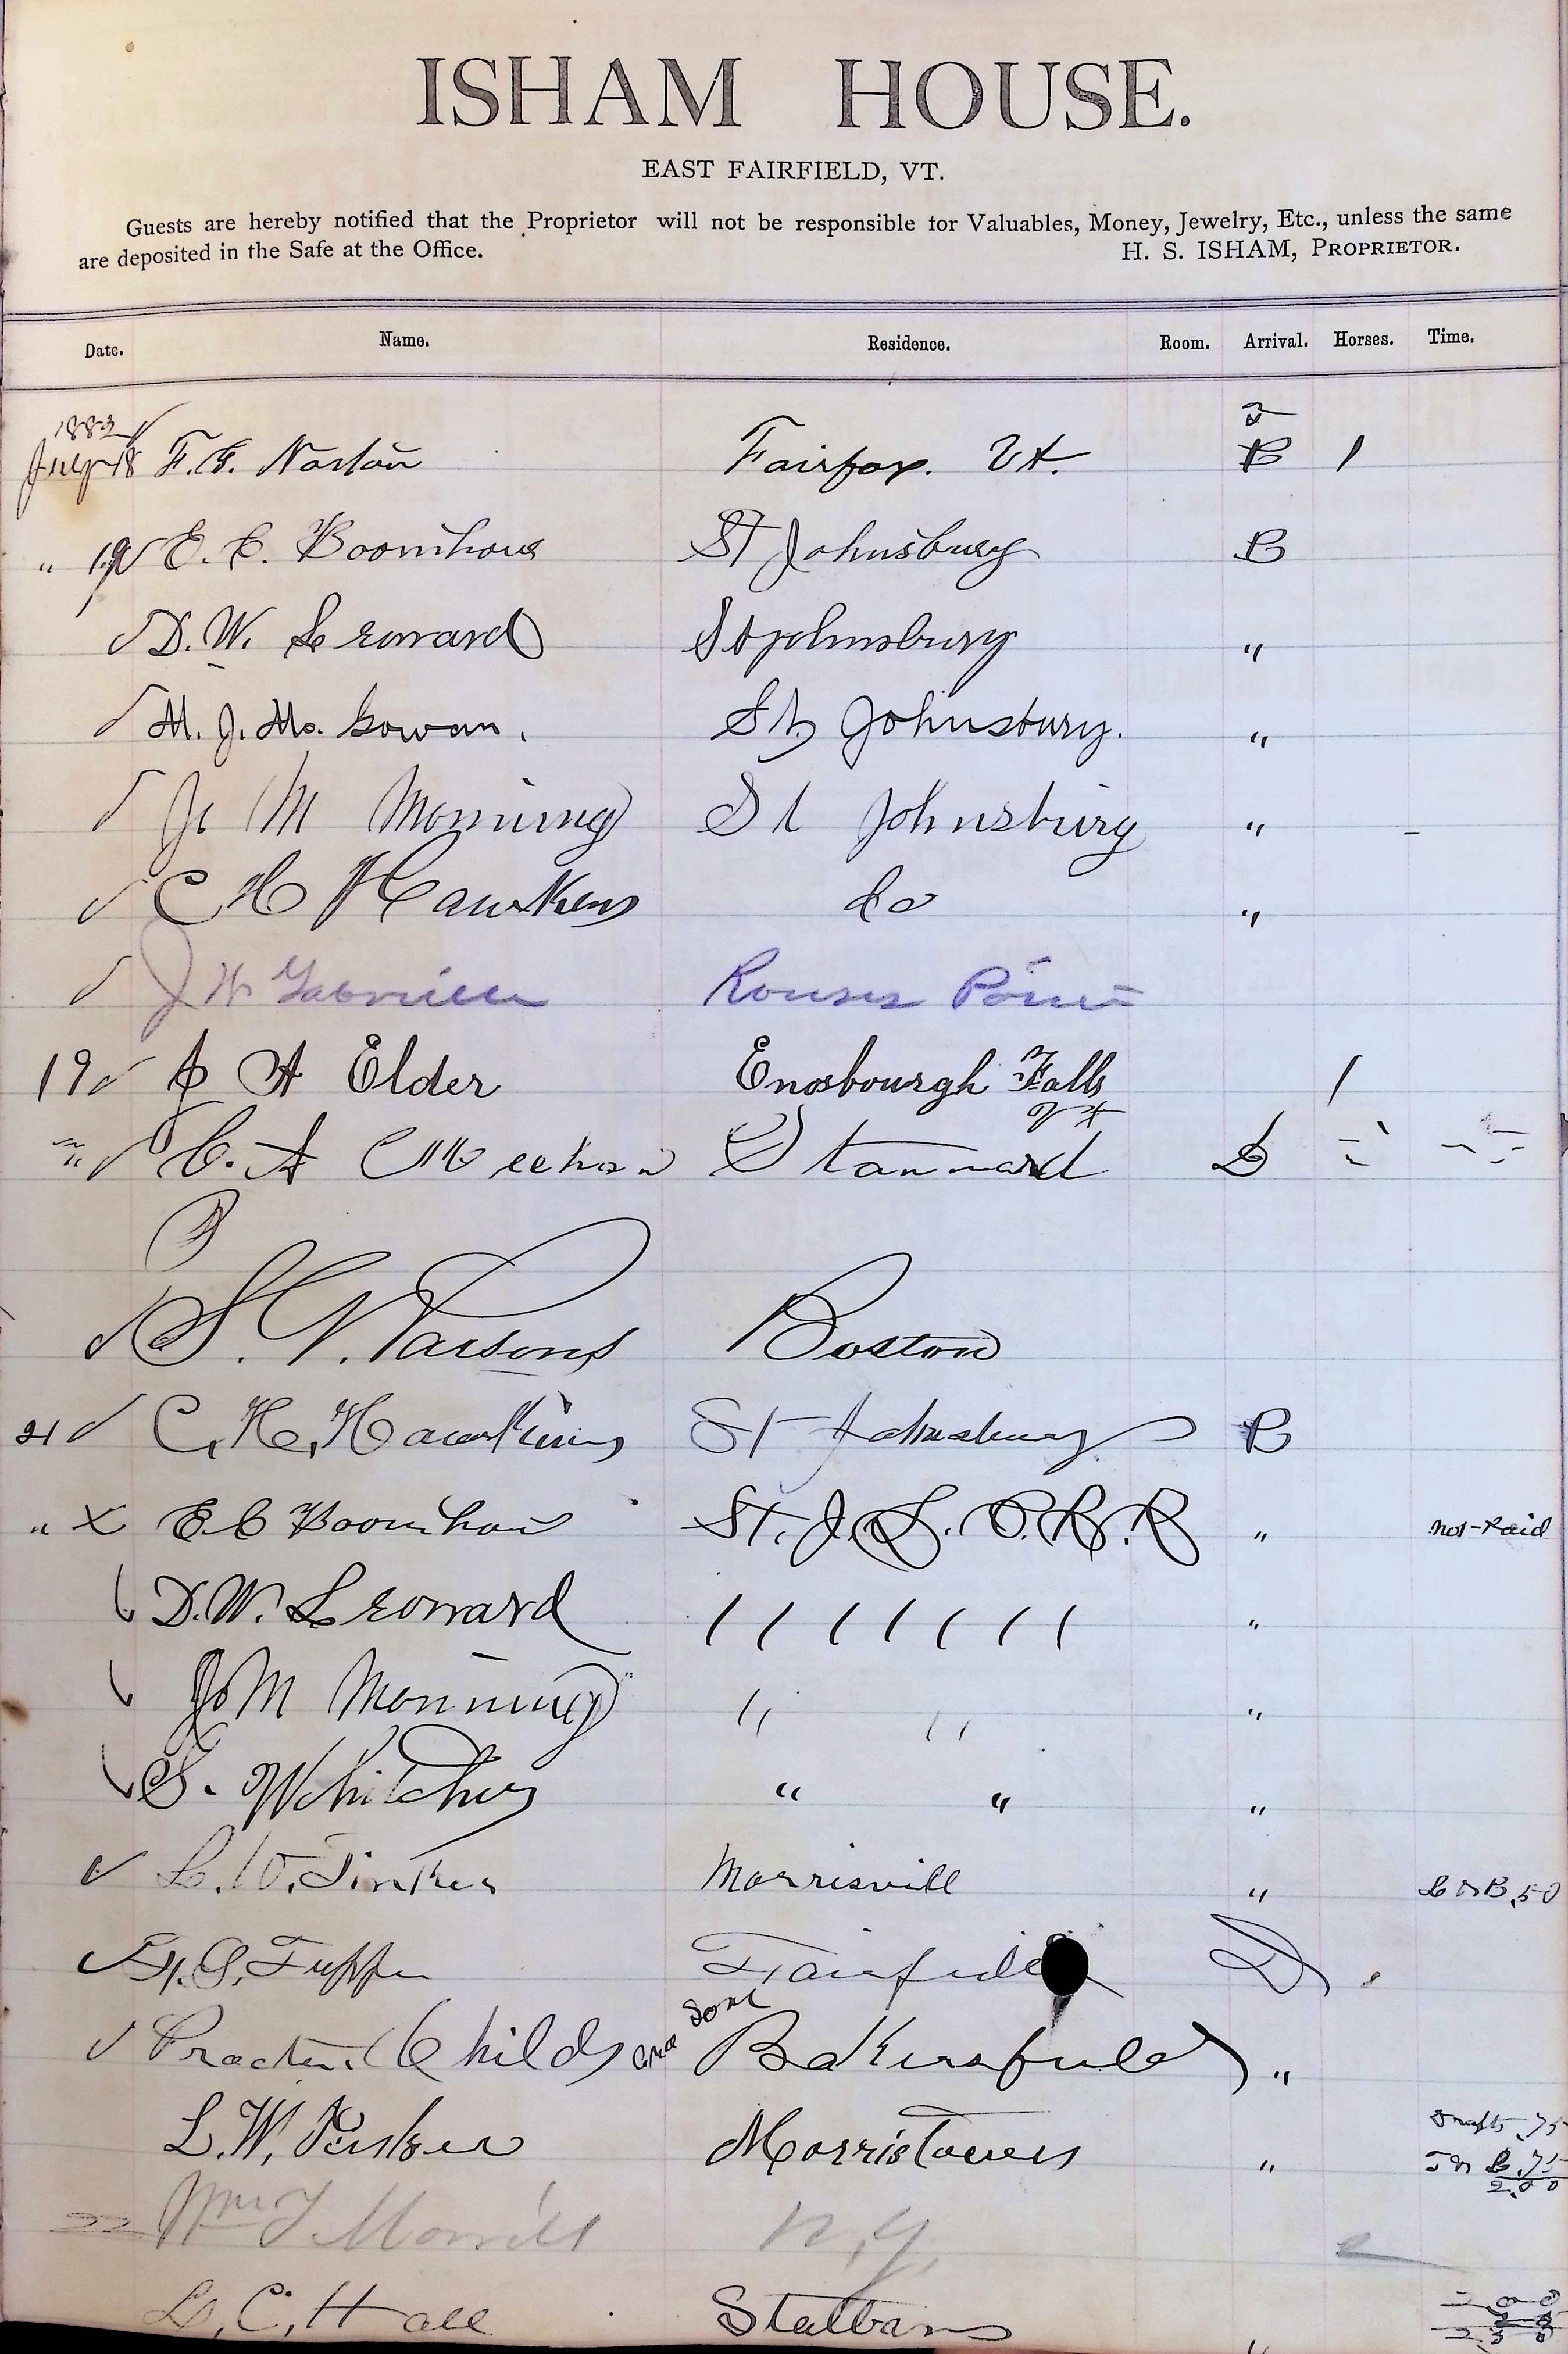 ISHAM HOUSE.
EAST FAIRFIELD, VT.
Guests are hereby notified that the Proprietor will not be responsible for Valuables, Money, Jewelry, Etc., unless the same
are deposited in the Safe at the Office. H. S. ISHAM, PROPRIETOR.
Date. Name. Residence. Room. Arrival. Horses. Time.
1883
July 18 F. G. Norton Fairfax. Vt. B 1
" 19 E. C. Boomhour St Johnsbury B
D. W. Leonard St Johnsbury "
M. J. Mc. Gowan. St Johnsbury. "
J. M Monning St Johnsbury "
C H Hawkens do "
J W Rouses Point
19 J A Elder Enosbourgh Falls 1
Vt
" C. A Meehan Stannard D
S. V. Parsons Boston
21 C. H. Hawkins St Johnsbury B
" X E C Boomhour St. J. & L. C. R. R " not-Paid
D. W. Leonard " " " "
J. M Monning " " "
S. Whitcher " " "
L. W. Tinker Morrisvill " L & B .50
Tupper Fairfield D
Procter Childs and Son Bakersfield "
L. W. Morristown " .75
.75
2.00
22 Wm T Morrill N. Y.
L. C. Hall St albans "